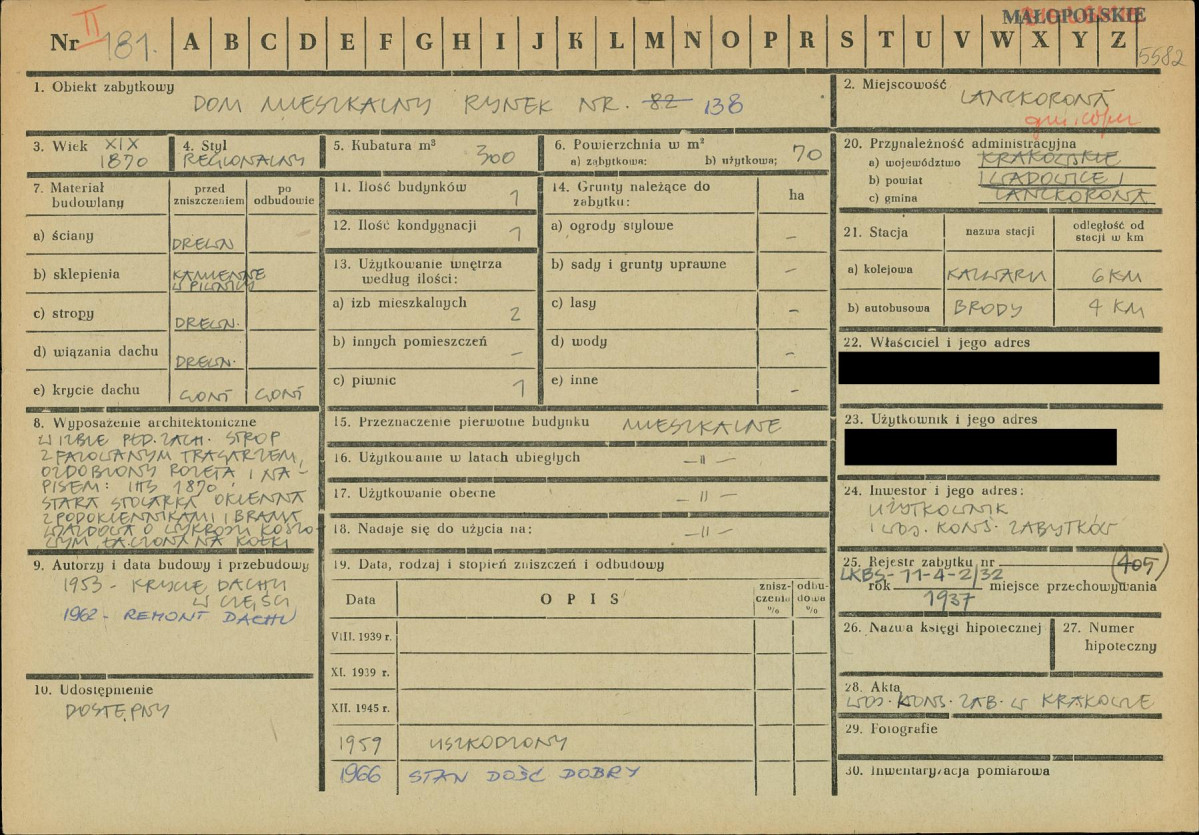 MAŁOPOLSKIE
Nr II 181. A B C D E F G H I J K L M N O P R S T U V W X Y Z 5582
1. Obiekt zabytkowy
DOM MIESZKALNY RYNEK NR. 82 138
2. Miejscowość
LANCKORONA
3. Wiek XIX
1870
4. Styl
REGIONALNY
5. Kubatura m³
300
6. Powierzchnia w m²
a) zabytkowa: b) użytkowa; 70
20. Przynależność administracyjna
a) województwo KRAKOWSKIE
b) powiat WADOWICE
c) gmina LANCKORONA
7. Materiał budowlany
przed zniszczeniem
po odbudowie
a) ściany DREWN
b) sklepienia KAMIENNE
W PIWNICY
c) stropy DREWN.
d) wiązania dachu DREWN.
e) krycie dachu GONT GONT
11. Ilość budynków 1
12. Ilość kondygnacji 1
13. Użytkowanie wnętrza
według ilości:
a) izb mieszkalnych 2
b) innych pomieszczeń –
c) piwnic 1
14. Grunty należące do
zabytku: ha
a) ogrody stylowe –
b) sady i grunty uprawne –
c) lasy –
d) wody –
e) inne –
21. Stacja
nazwa stacji
odległość od
stacji w km
a) kolejowa KALWARIA 6 KM
b) autobusowa BRODY 4 KM
22. Właściciel i jego adres
23. Użytkownik i jego adres
8. Wyposażenie architektoniczne
W IZBIE PŁD. ZACH. STROP
Z FAZOWANYM TRAGARZEM,
OZDOBIONY ROZETĄ I NA-
PISEM: IHS 1870.
STARA STOLARKA OKIENNA
Z PODOKIENNIKAMI I BRAMA
WJAZDOWA O WYKROJU KOSZO
WYM ŁĄCZONA NA KOŁKI
15. Przeznaczenie pierwotne budynku MIESZKALNE
16. Użytkowanie w latach ubiegłych – 11 –
17. Użytkowanie obecne – 11 –
18. Nadaje się do użycia na: – 11 –
24. Inwestor i jego adres:
UŻYTKOWNIK
I WOJ. KONS. ZABYTKÓW
9. Autorzy i data budowy i przebudowy
1953 - KRYCIE DACHU
W CZĘŚCI
1962 - REMONT DACHU
19. Data, rodzaj i stopień zniszczeń i odbudowy
Data
OPIS
znisz-
czenia
%
odbu-
dowa
%
VIII. 1939 r.
XI. 1939 r.
XII. 1945 r.
1959 USZKODZONY
1966 STAN DOŚĆ DOBRY
25. Rejestr zabytku nr (405)
LKBS-11-4-2/32
rok 1937 miejsce przechowywania
26. Nazwa księgi hipotecznej
27. Numer
hipoteczny
10. Udostępnienie
DOSTĘPNY
28. Akta
WOJ. KONS. ZAB. W KRAKOWIE
29. Fotografie
30. Inwentaryzacja pomiarowa